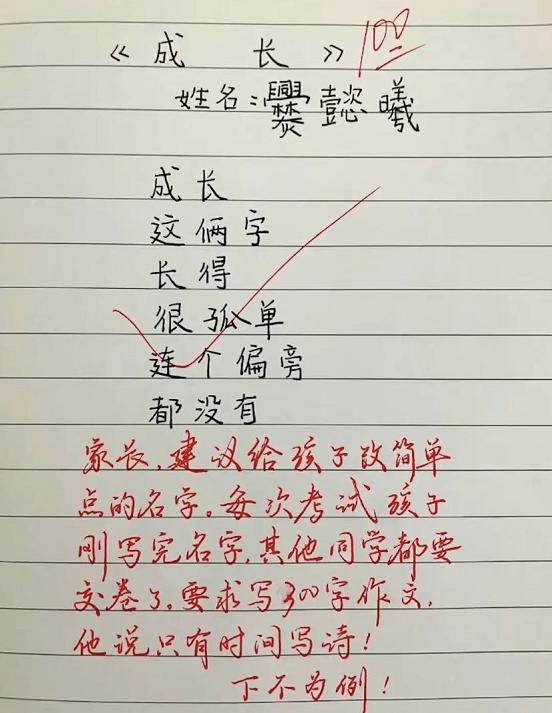 《成 长》 100
姓名:爨懿曦
成长
这俩字
长得
很孤单
连个偏旁
都没有
家长,建议给孩子改简单
点的名字。每次考试孩子
刚写完名字,其他同学都要
交卷了。要求写300字作文,
他说只有时间写诗!
下不为例!